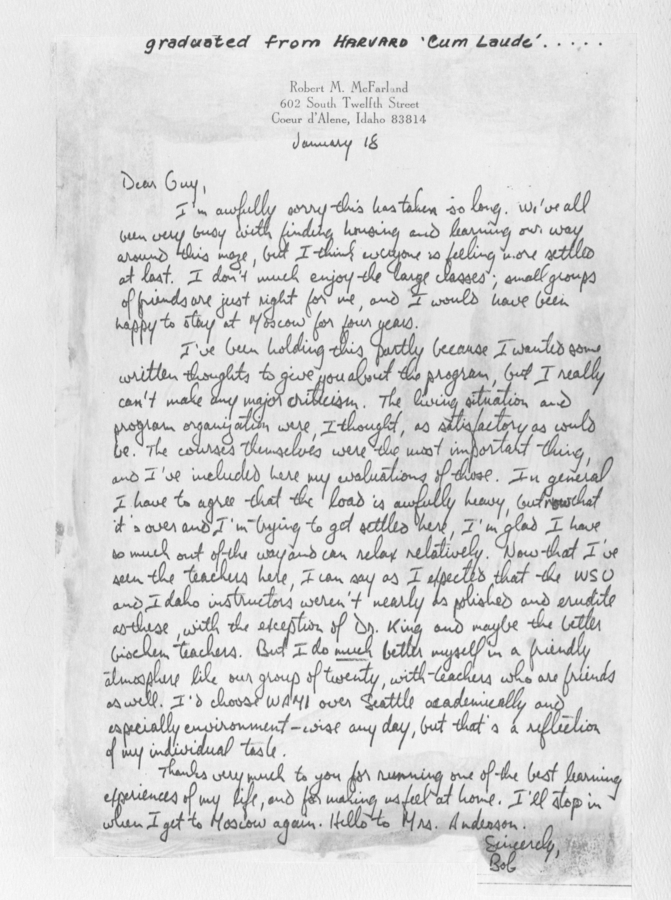 graduated from HARVARD 'Cum Laude'.....
Robert M. McFarland
602 South Twelfth Street
Coeur d'Alene, Idaho 83814
January 18
Dear Guy,
I'm awfully sorry this has taken so long. We've all
been very busy with finding housing and learning our way
around this maze, but I think everyone is feeling more settled
at last. I don't much enjoy the large classes; small groups
of friends are just right for me, and I would have been
happy to stay at Moscow for four years.
I've been holding this partly because I wanted some
written thoughts to give you about the program, but I really
can't make any major criticism. The living situation and
program organization were, I thought, as satisfactory as would
be. The courses themselves were the most important thing,
and I've included here my evaluations of those. In general
I have to agree that the load is awfully heavy, but now that
it's over and I'm trying to get settled here, I'm glad I have
so much out of the way and can relax relatively. Now that I've
seen the teachers here, I can say as I expected that the WSU
and Idaho instructors weren't nearly as polished and erudite
as these, with the exception of Dr. King and maybe the better
biochem teachers. But I do much better myself in a friendly
atmosphere like our group of twenty, with teachers who are friends
as well. I'd choose WAMI over Seattle academically and
especially environment-wise any day, but that's a reflection
of my individual taste.
Thanks very much to you for running one of the best learning
experiences of my life, and for making us feel at home. I'll stop in
when I get to Moscow again. Hello to Mrs. Anderson.
Sincerely,
Bob